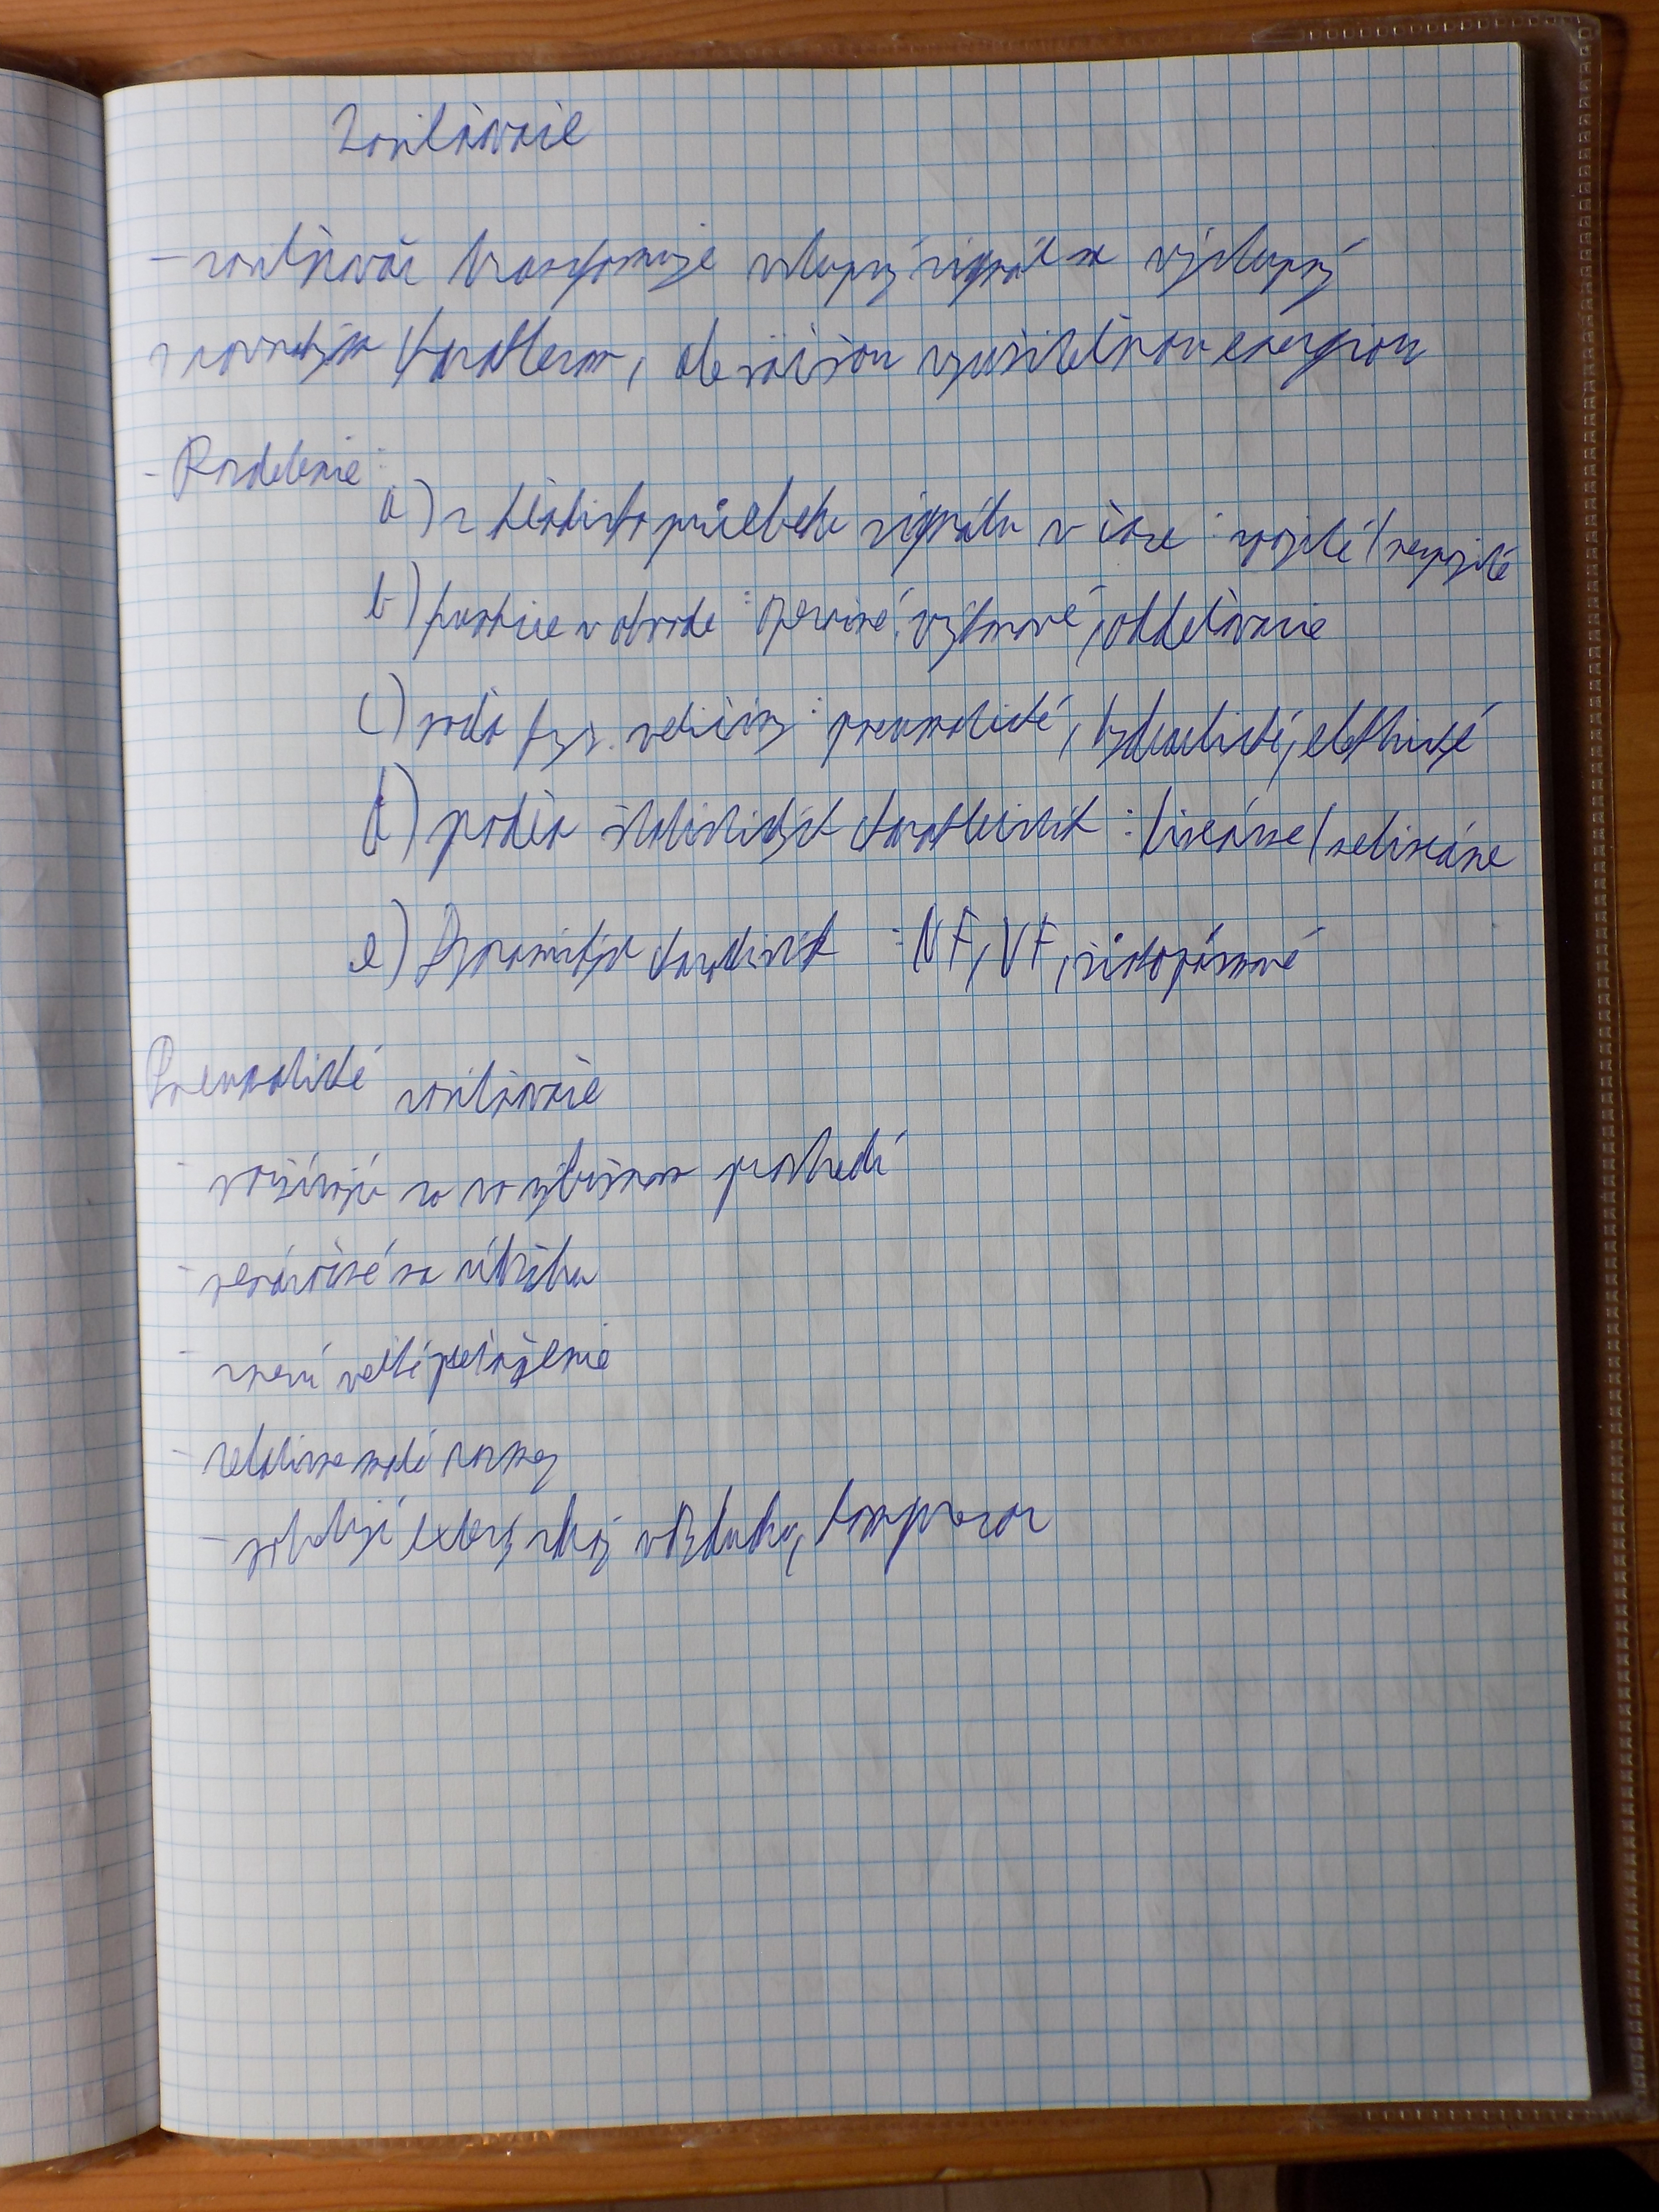 Zosilňovače
- zosilňovač transformuje vstupný signál na výstupný
s rovnakým charakterom, ale väčšou využiteľnou energiou
- Rozdelenie:
a) z hľadiska priebehu signálu v čase: spojité/nespojité
b) funkcie v obvode: operačné, výkonové, oddeľovacie
c) podľa fyz. veličiny: pneumatické, hydraulické, elektrické
d) podľa statických charakteristik: lineárne/nelineárne
e) Dynamických : NF, VF, širokopásmové
Pneumatické zosilňovače
- používajú sa vo výbušnom prostredí
- nenáročné na údržbu
- znesú veľké preťaženie
- relatívne malé rozmery
- potrebujú externý zdroj vzduchu, kompresor